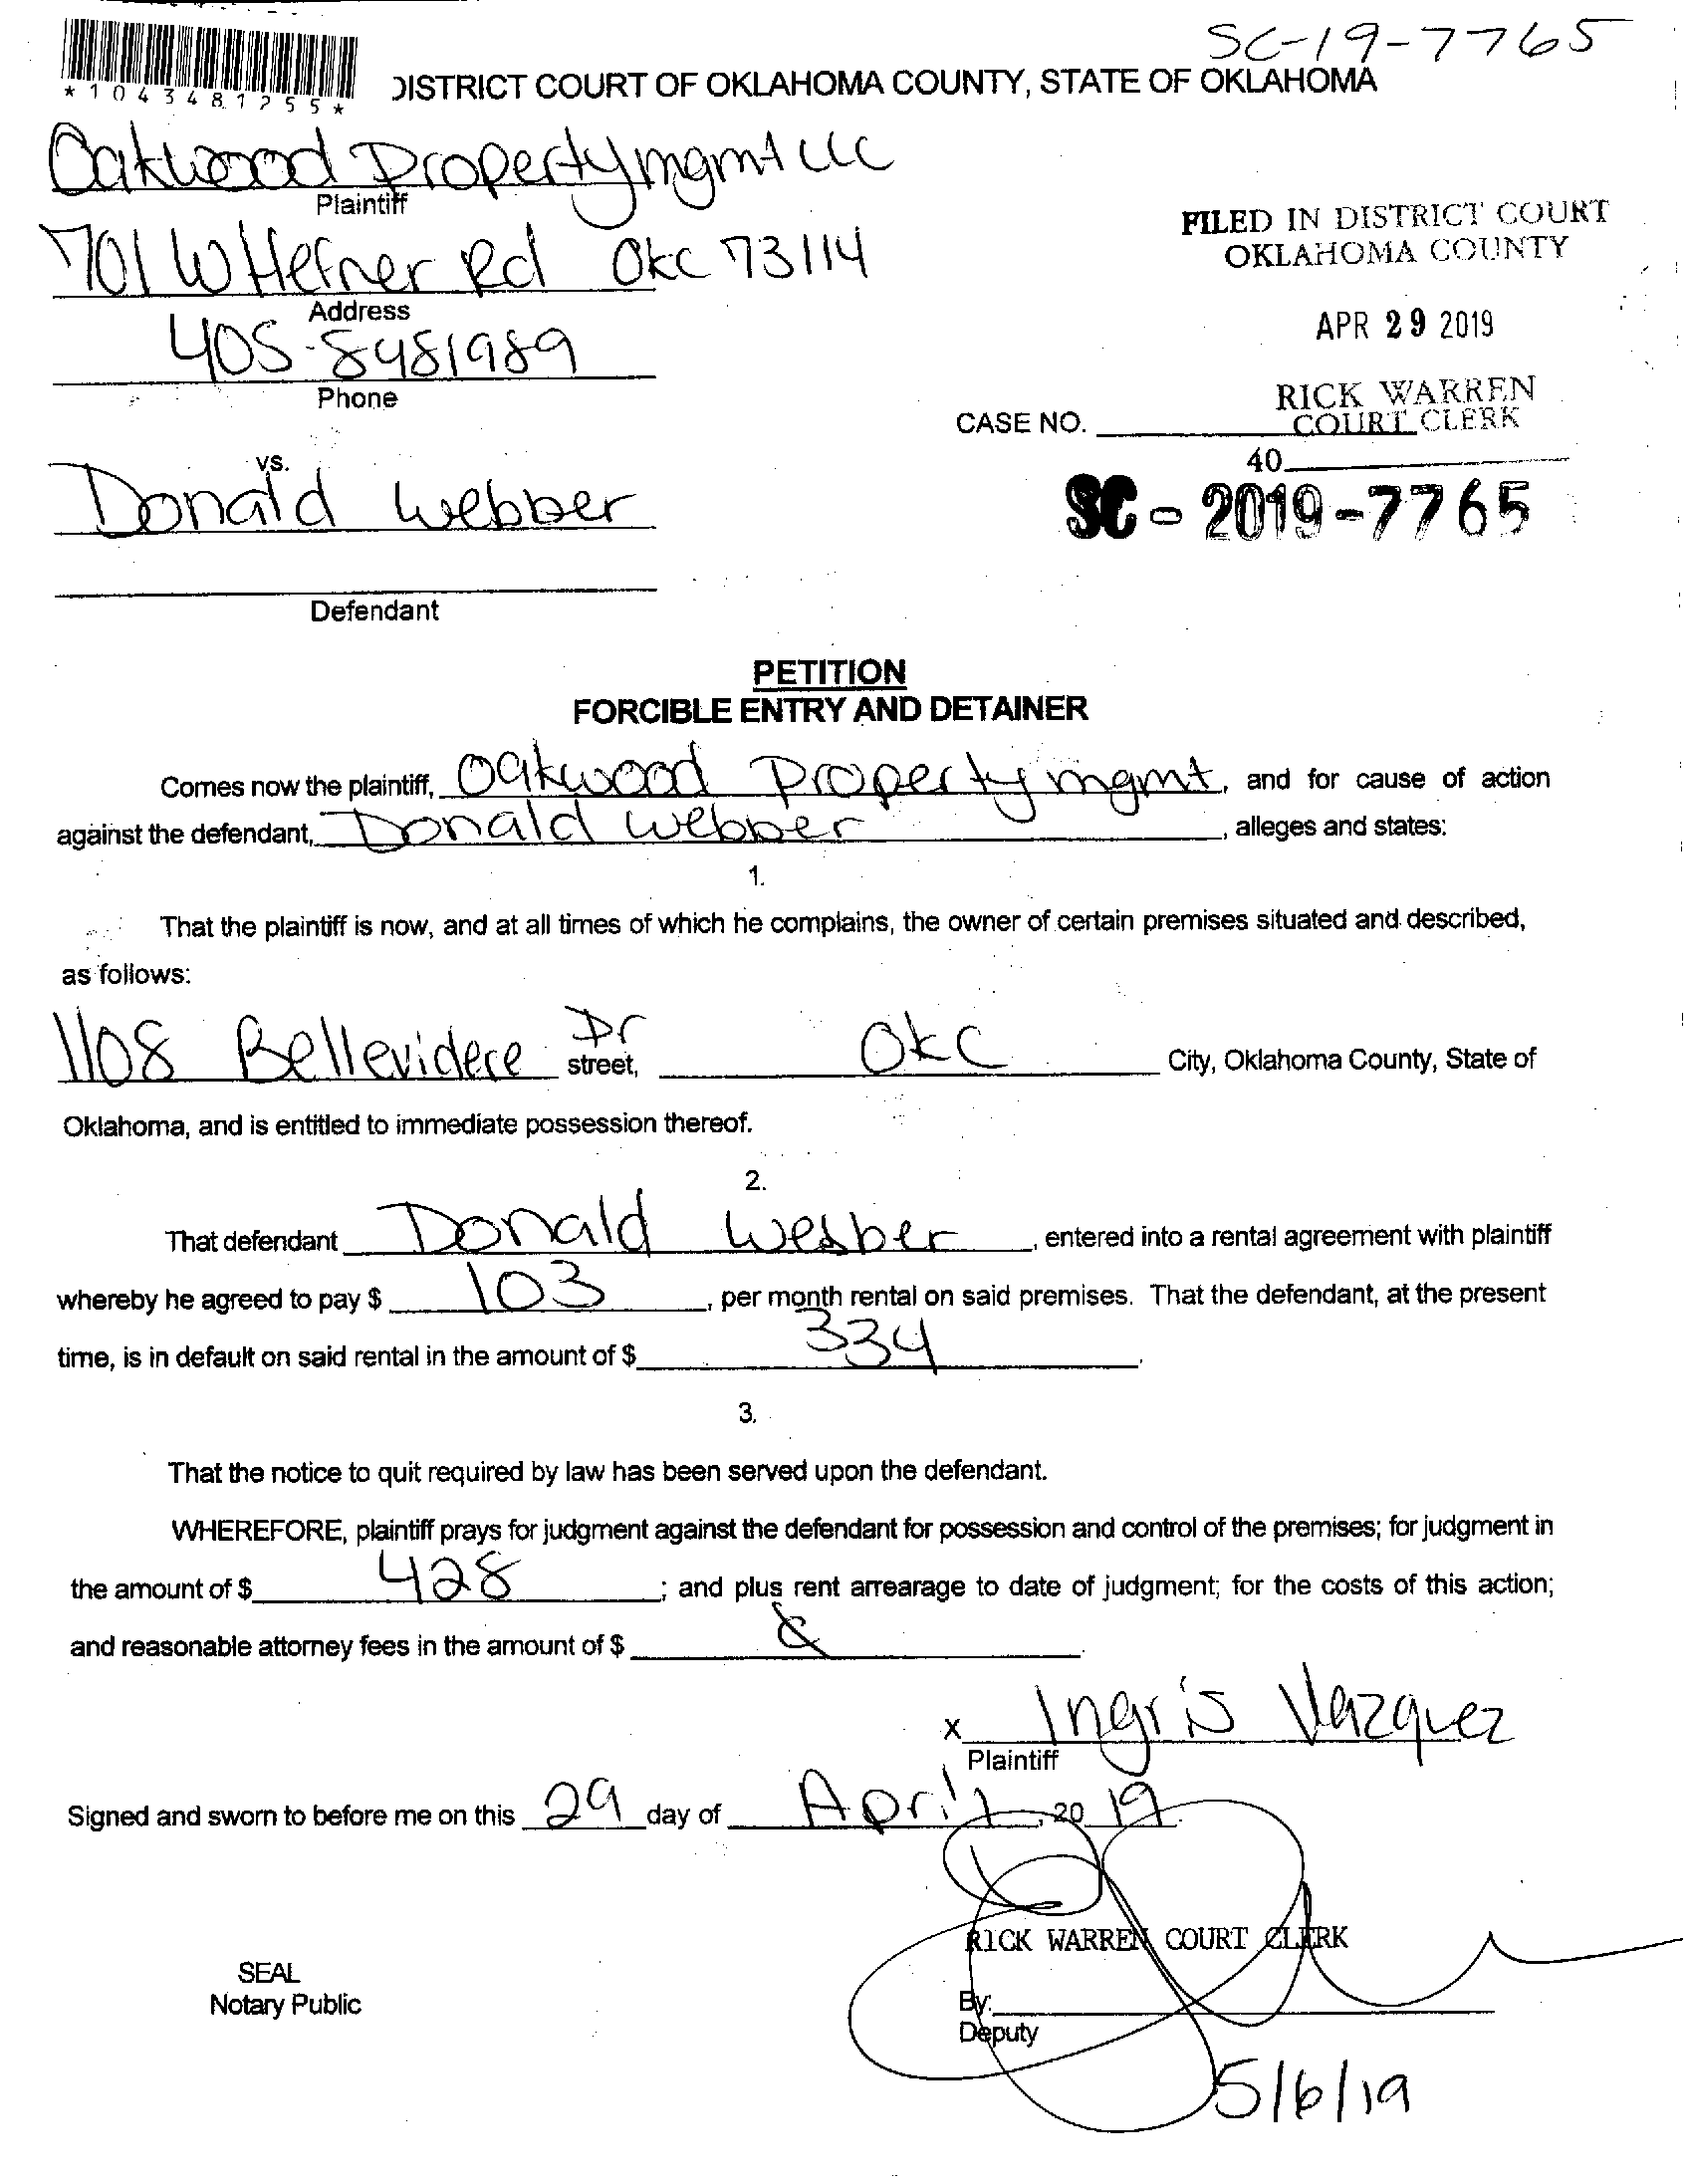 SC-19-7765
*1043481255*
DISTRICT COURT OF OKLAHOMA COUNTY, STATE OF OKLAHOMA
Oakwood Property mgmt LLC
Plaintiff
701 W Hefner Rd OKC 73114
Address
405-8481989
Phone
FILED IN DISTRICT COURT
OKLAHOMA COUNTY
APR 29 2019
RICK WARREN
COURT CLERK
CASE NO.
40
SC - 2019-7765
vs.
Donald Webber
Defendant
PETITION
FORCIBLE ENTRY AND DETAINER
Comes now the plaintiff, Oakwood Property mgmt, and for cause of action
against the defendant, Donald Webber, alleges and states:
1.
That the plaintiff is now, and at all times of which he complains, the owner of certain premises situated and described,
as follows:
1108 Bellevidere Dr street, OKC City, Oklahoma County, State of
Oklahoma, and is entitled to immediate possession thereof.
2.
That defendant Donald Webber, entered into a rental agreement with plaintiff
whereby he agreed to pay $ 103, per month rental on said premises. That the defendant, at the present
time, is in default on said rental in the amount of $ 334.
3.
That the notice to quit required by law has been served upon the defendant.
WHEREFORE, plaintiff prays for judgment against the defendant for possession and control of the premises; for judgment in
the amount of $ 428; and plus rent arrearage to date of judgment; for the costs of this action;
and reasonable attorney fees in the amount of $
x Ingris Vazquez
Plaintiff
Signed and sworn to before me on this 29 day of April, 20 19.
RICK WARREN COURT CLERK
SEAL
Notary Public
By:
Deputy
5/6/19